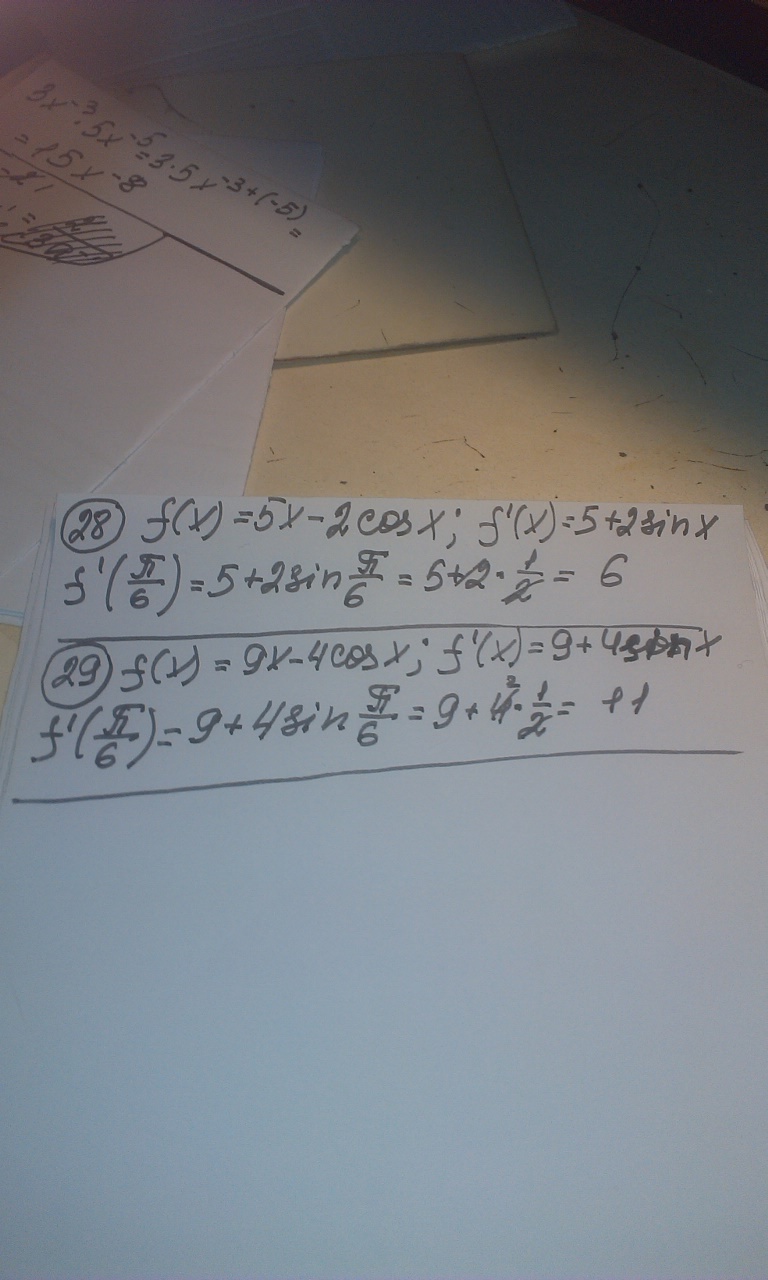 3x⁻³·5x⁻⁵=3·5x⁻³⁺⁽⁻⁵⁾=
=15x⁻⁸
28 f(x)=5x-2cosx; f'(x)=5+2sinx
f'(π/6)=5+2sin π/6=5+2·1/2=6
29 f(x)=9x-4cosx; f'(x)=9+4sinx
f'(π/6)=9+4sin π/6=9+4²·1/2=11